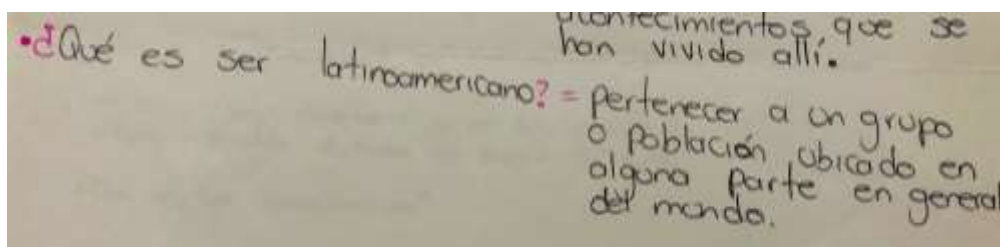 acontecimientos, que se
han vivido allí.
•¿Qué es ser latinoamericano? = pertenecer a un grupo
o población ubicado en
alguna parte en general
del mundo.